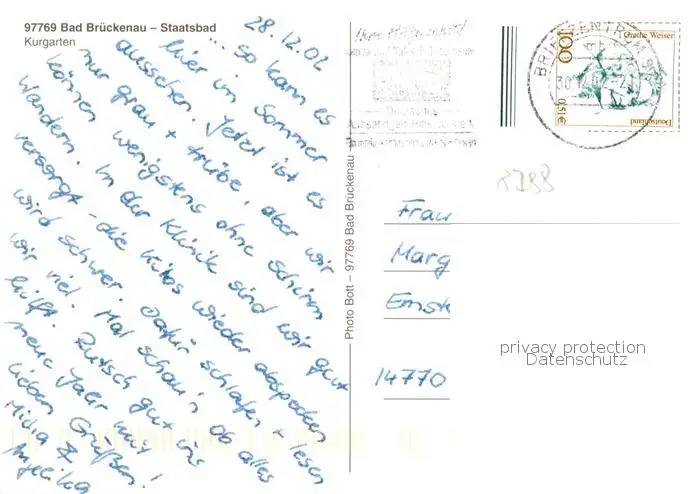 97769 Bad Brückenau – Staatsbad
Kurgarten
28.12.02
... so kann es
hier im Sommer
aussehen. Jetzt ist es
nur grau + trübe, aber wir
können wenigstens ohne Schirm
wandern. In der Klinik sind wir gut
versorgt - die Kilos wieder abspecken
wird schwer. Dafür schlafen + lesen
wir viel. Mal schau'n ob alles
hilft. Rutsch gut ins
neue Jahr mit
lieben Grüßen!
Angelika
Photo Bott – 97769 Bad Brückenau
BRIEFZENTRUM
Grethe Weiser
100
0,51€
Deutschland
8788
Frau
Marg
Ernst
14770
privacy protection
Datenschutz